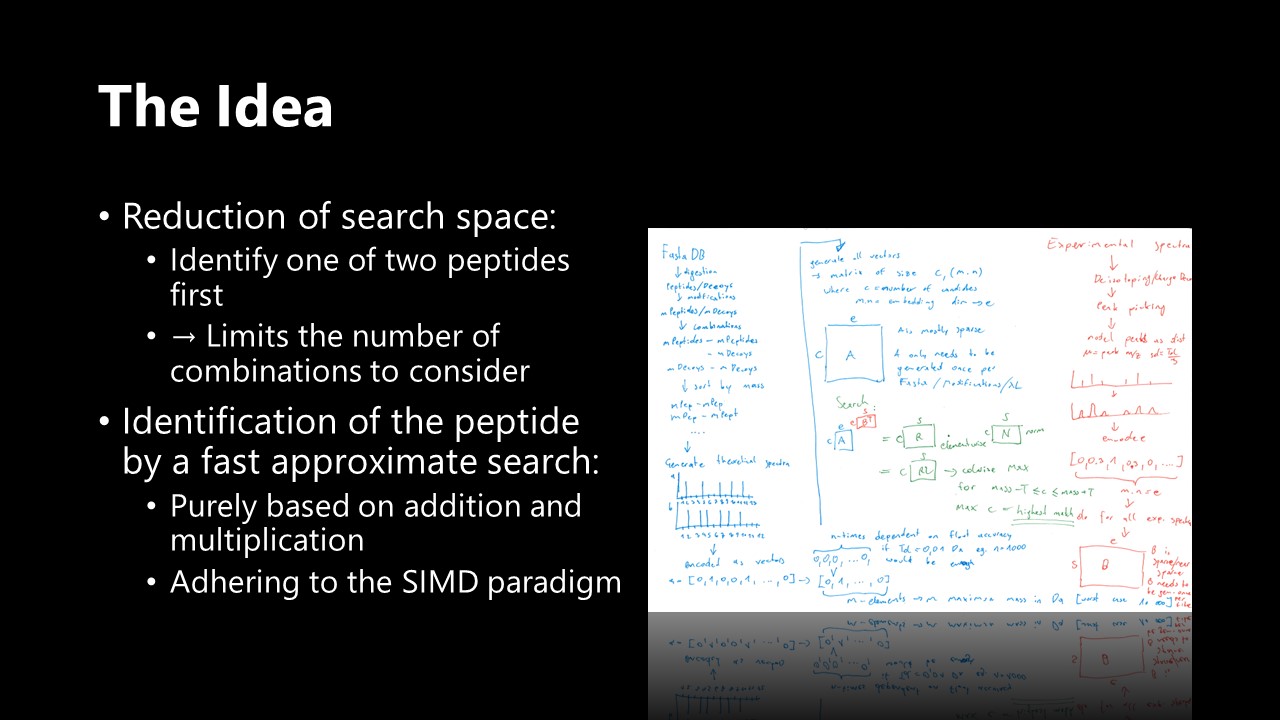 The Idea
• Reduction of search space:
• Identify one of two peptides
first
• → Limits the number of
combinations to consider
• Identification of the peptide
by a fast approximate search:
• Purely based on addition and
multiplication
• Adhering to the SIMD paradigm
Fasta DB
↓ digestion
Peptides/Decoys
↓ modifications
mPeptides/mDecoys
↓ combinations
mPeptides - mPeptides
- mDecoys
mDecoys - mDecoys
↓ sort by mass
mPep - mPep
mPep - mPept
....
↓
Generate theoretical spectra
a
b
↓
encoded as vectors
a = [0,1,0,0,1, ..., 0] →
generate all vectors
→ matrix of size c, (m.n)
where c = number of
m.n = embedding dim → e
e
c A
A is mostly sparse
A only needs to be
generated once per
Fasta / Modifications/XL
Search:
e
c A
s
e B^T
s
= c R
elementwise
s
c N norm
s
= c
→ colwise max
for mass-T ≤ c ≤ mass+T
max c = highest match
n-times dependent on float accuracy
0,0,0, ...0,
if Tol = 0,01 Da eg. n=1000
would be enough
[0,1, ..., 0]
m-elements → m maximum mass in Da [worst case
Experimental spectra
↓
Deisotoping/charge
↓
Peak picking
↓
model peaks as dist
μ = peak m/z sd =
↓
↓
encode
[0,0.2,1,0.2,0, ...]
m.n = e
↓
do for all exp.
↓
e
s B
B is
sparse
B needs to